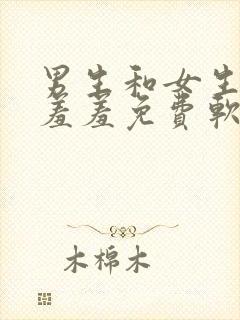 男生和女生
羞羞免费軟
木棉木